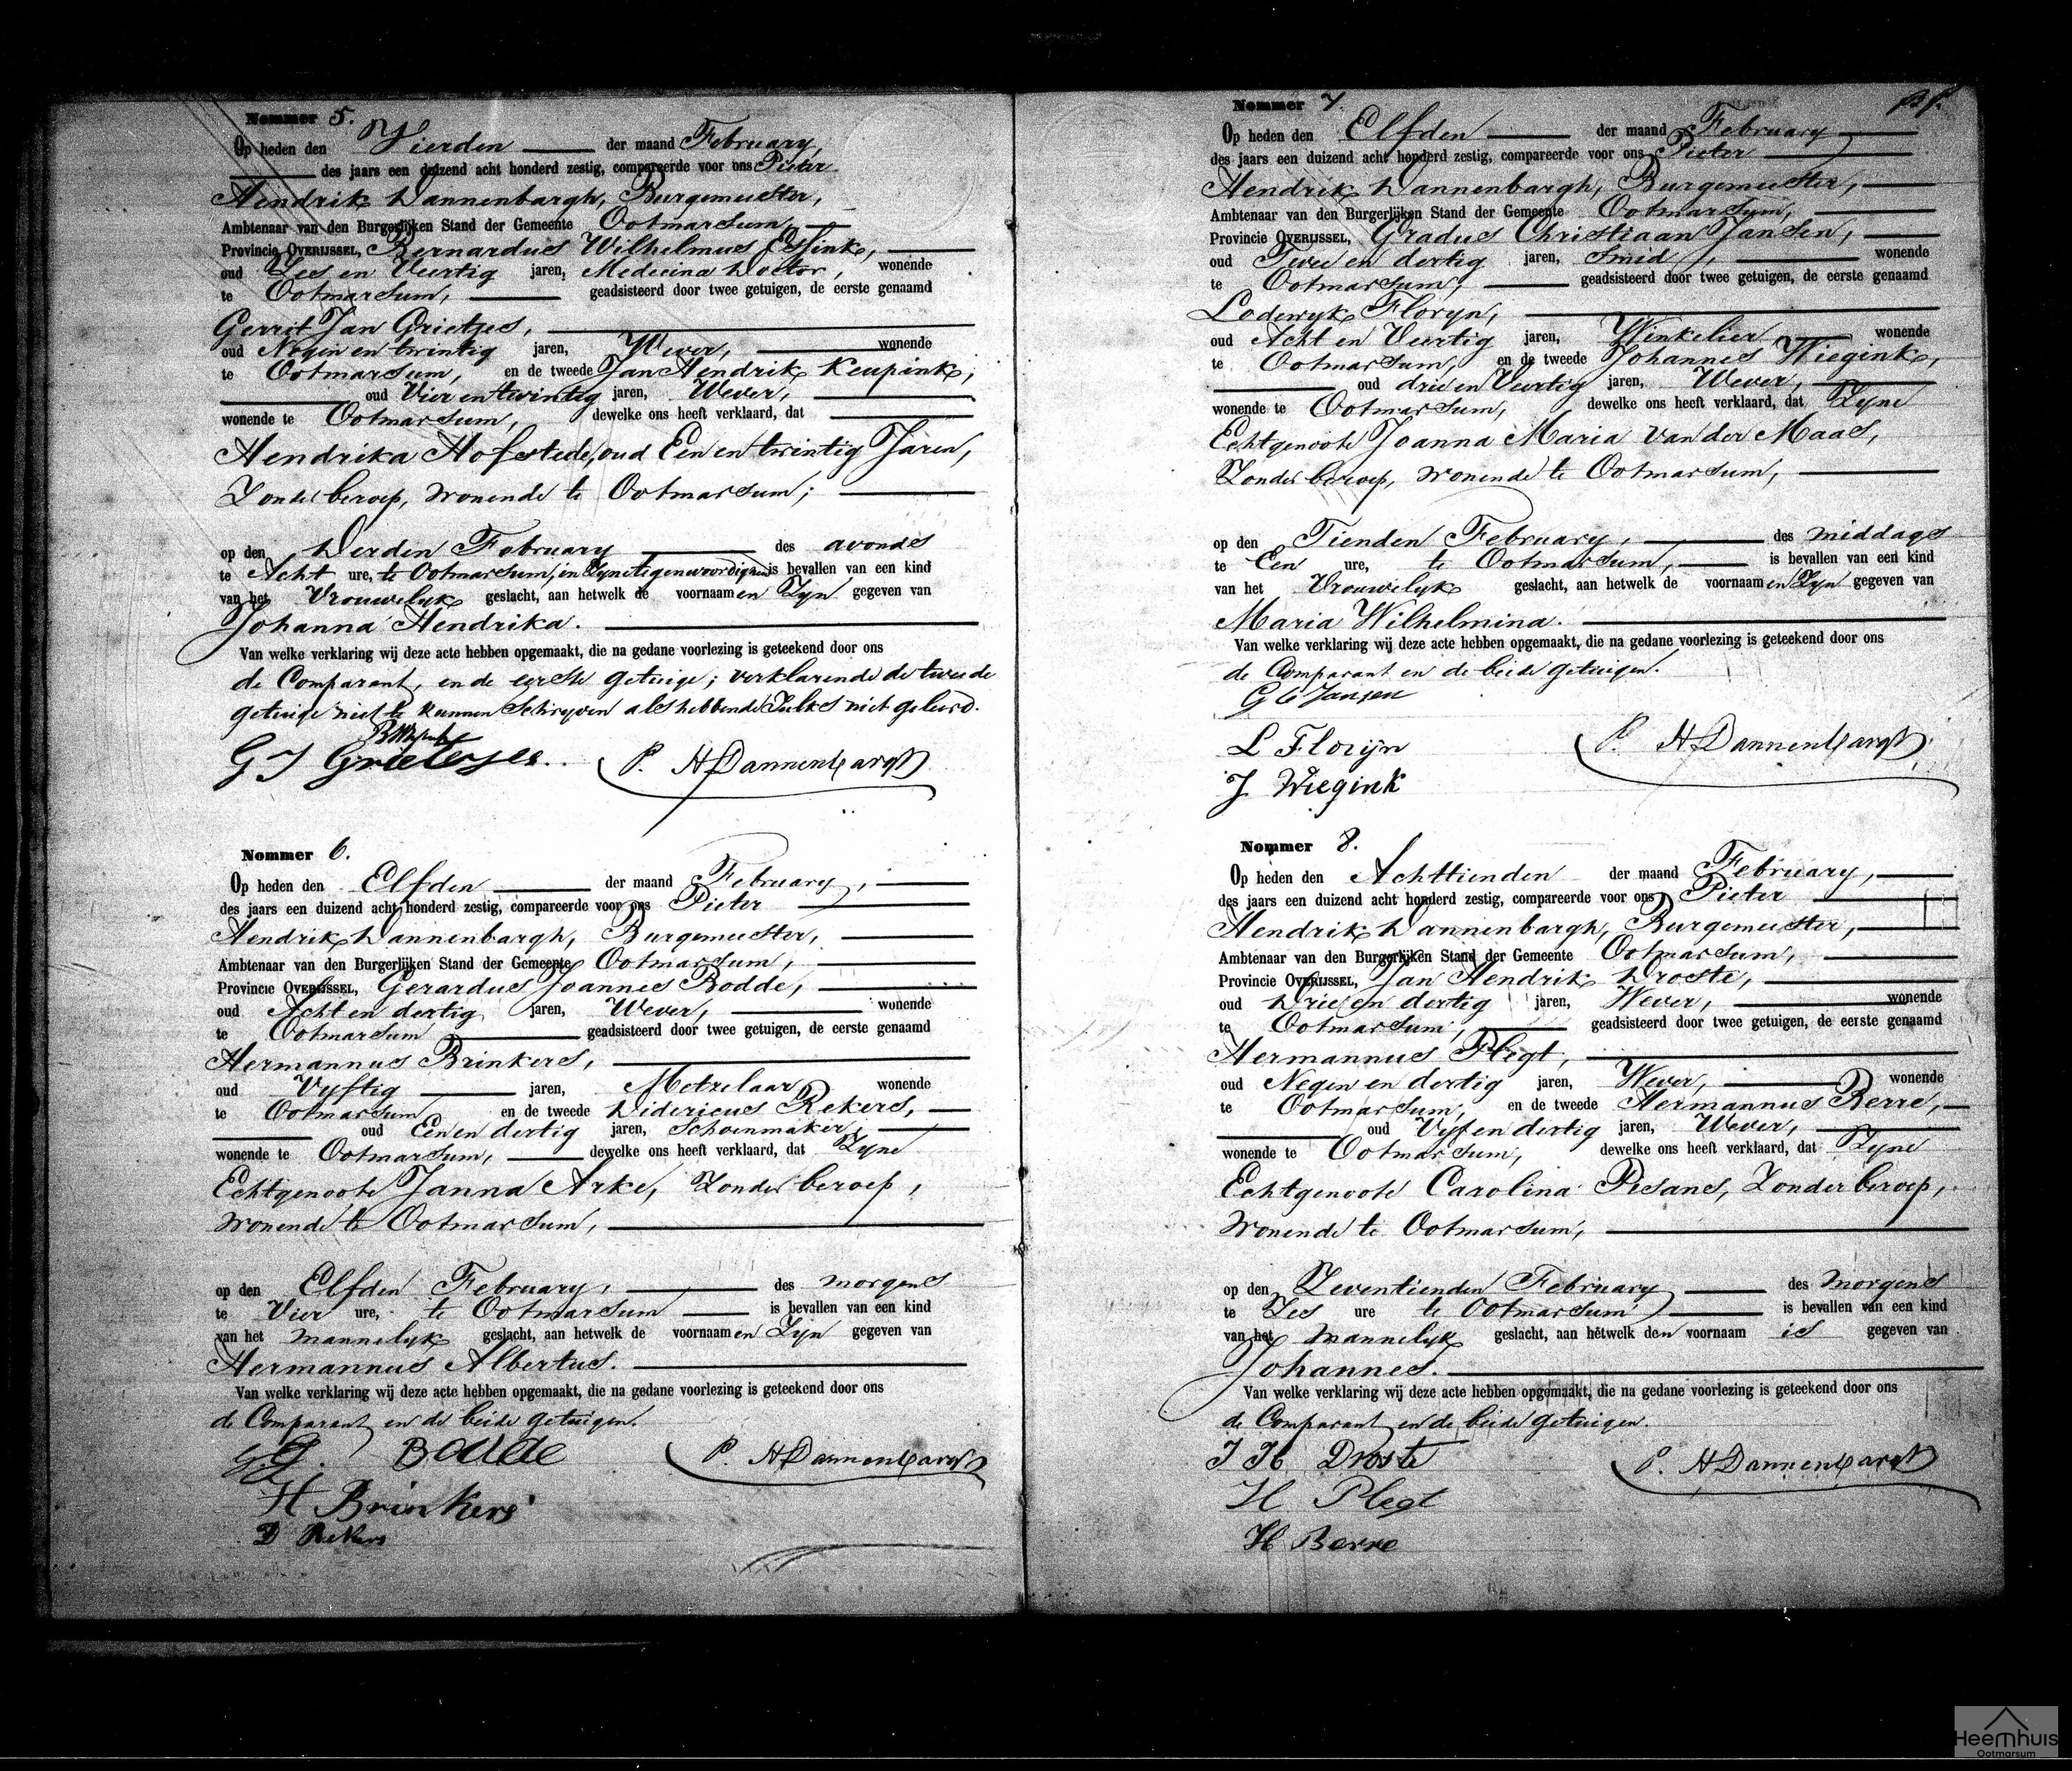 Nommer 5.
Op heden den Vierden der maand February,
des jaars een duizend acht honderd zestig, compareerde voor ons Pieter
Hendrik Dannenbargh, Burgemeester,
Ambtenaar van den Burgerlijken Stand der Gemeente Ootmarsum,
Provincie OVERIJSSEL, Bernardus Wilhelmus Essink,
oud Zes en Veertig jaren, Medecina Doctor, wonende
te Ootmarsum, geadsisteerd door twee getuigen, de eerste genaamd
Gerrit Jan Grietjes,
oud Negen en twintig jaren, Wever, wonende
te Ootmarsum, en de tweede Jan Hendrik Keupink,
oud Vier en twintig jaren, Wever,
wonende te Ootmarsum, dewelke ons heeft verklaard, dat
Hendrika Hofstede, oud Een en twintig Jaren,
Zonder beroep, wonende te Ootmarsum;
op den Derden February des avonds
te Acht ure, te Ootmarsum, in Zyne tegenwoordigheid is bevallen van een kind
van het Vrouwelyk geslacht, aan hetwelk de voornaamen Zyn gegeven van
Johanna Hendrika.
Van welke verklaring wij deze acte hebben opgemaakt, die na gedane voorlezing is geteekend door ons
de Comparant, en de eerste getuige; verklarende de tweede
getuige niet te kunnen Schryven als hebbende Zulks niet geleerd.
G J Grietjes. P. H Dannenbargh
Nommer 6.
Op heden den Elfden der maand February,
des jaars een duizend acht honderd zestig, compareerde voor ons Pieter
Hendrik Dannenbargh, Burgemeester,
Ambtenaar van den Burgerlijken Stand der Gemeente Ootmarsum,
Provincie OVERIJSSEL, Gerardus Joannes Bodde,
oud Acht en dertig jaren, Wever, wonende
te Ootmarsum geadsisteerd door twee getuigen, de eerste genaamd
Hermannus Brinkers,
oud Vyftig jaren, Metzelaar wonende
te Ootmarsum en de tweede Didericus Rekers,
oud Een en dertig jaren, Schoenmaker,
wonende te Ootmarsum, dewelke ons heeft verklaard, dat Zyne
Echtgenoote Janna Arke, Zonder beroep,
wonende te Ootmarsum,
op den Elfden February, des morgens
te Vier ure, te Ootmarsum is bevallen van een kind
van het mannelyk geslacht, aan hetwelk de voornaamen Zyn gegeven van
Hermannus Albertus.
Van welke verklaring wij deze acte hebben opgemaakt, die na gedane voorlezing is geteekend door ons
de Comparant en de beide getuigen.
G. J. Bodde P. H Dannenbargh
H Brinkers
D Rekers
Nommer 7.
Op heden den Elfden der maand February
des jaars een duizend acht honderd zestig, compareerde voor ons Pieter
Hendrik Dannenbargh, Burgemeester,
Ambtenaar van den Burgerlijken Stand der Gemeente Ootmarsum,
Provincie OVERIJSSEL, Gradus Christiaan Jansen,
oud Twee en dertig jaren, Smid, wonende
te Ootmarsum, geadsisteerd door twee getuigen, de eerste genaamd
Lodewyk Floryn,
oud Acht en Veertig jaren, Winkelier wonende
te Ootmarsum, en de tweede Johannes Wiegink,
oud drie en Veertig jaren, Wever,
wonende te Ootmarsum, dewelke ons heeft verklaard, dat Zyne
Echtgenoote Joanna Maria van der Maas,
Zonder beroep, wonende te Ootmarsum,
op den Tienden February, des middags
te Een ure, te Ootmarsum, is bevallen van een kind
van het Vrouwelyk geslacht, aan hetwelk de voornaamen Zyn gegeven van
Maria Wilhelmina.
Van welke verklaring wij deze acte hebben opgemaakt, die na gedane voorlezing is geteekend door ons
de Comparant en de beide getuigen.
G C Jansen
L Florijn P. H Dannenbargh
J Wiegink
Nommer 8.
Op heden den Achttienden der maand February,
des jaars een duizend acht honderd zestig, compareerde voor ons Pieter
Hendrik Dannenbargh, Burgemeester,
Ambtenaar van den Burgerlijken Stand der Gemeente Ootmarsum,
Provincie OVERIJSSEL, Jan Hendrik Droste,
oud Drie en dertig jaren, Wever, wonende
te Ootmarsum, geadsisteerd door twee getuigen, de eerste genaamd
Hermannus Plegt,
oud Negen en dertig jaren, Wever, wonende
te Ootmarsum, en de tweede Hermannus Berre,
oud Vyf en dertig jaren, Wever,
wonende te Ootmarsum, dewelke ons heeft verklaard, dat Zyne
Echtgenoote Carolina Pesans, Zonder beroep,
wonende te Ootmarsum,
op den Zeventienden February des morgens
te Zes ure te Ootmarsum is bevallen van een kind
van het mannelyk geslacht, aan hetwelk den voornaam is gegeven van
Johannes.
Van welke verklaring wij deze acte hebben opgemaakt, die na gedane voorlezing is geteekend door ons
de Comparant en de beide getuigen.
J H Droste P. H Dannenbargh
H Plegt
H Berre
Heemhuis
Ootmarsum